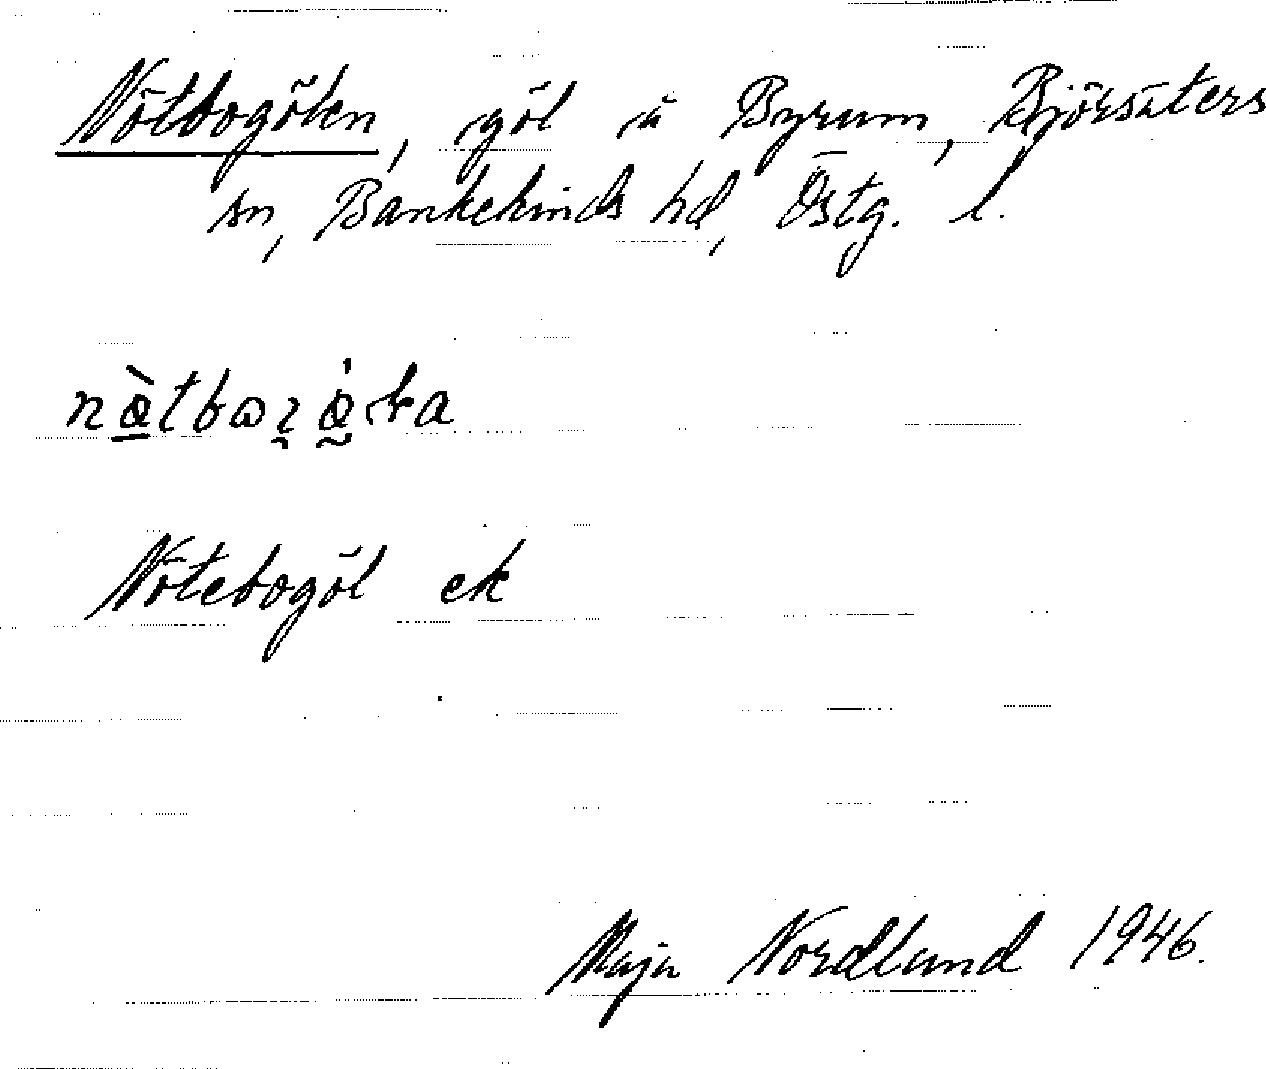 Nötbogölen, göl å Byrum, Björsäters
sn, Bankekinds hd, Östg. l.
Nötebogöl ek
Maja Nordlund 1946.